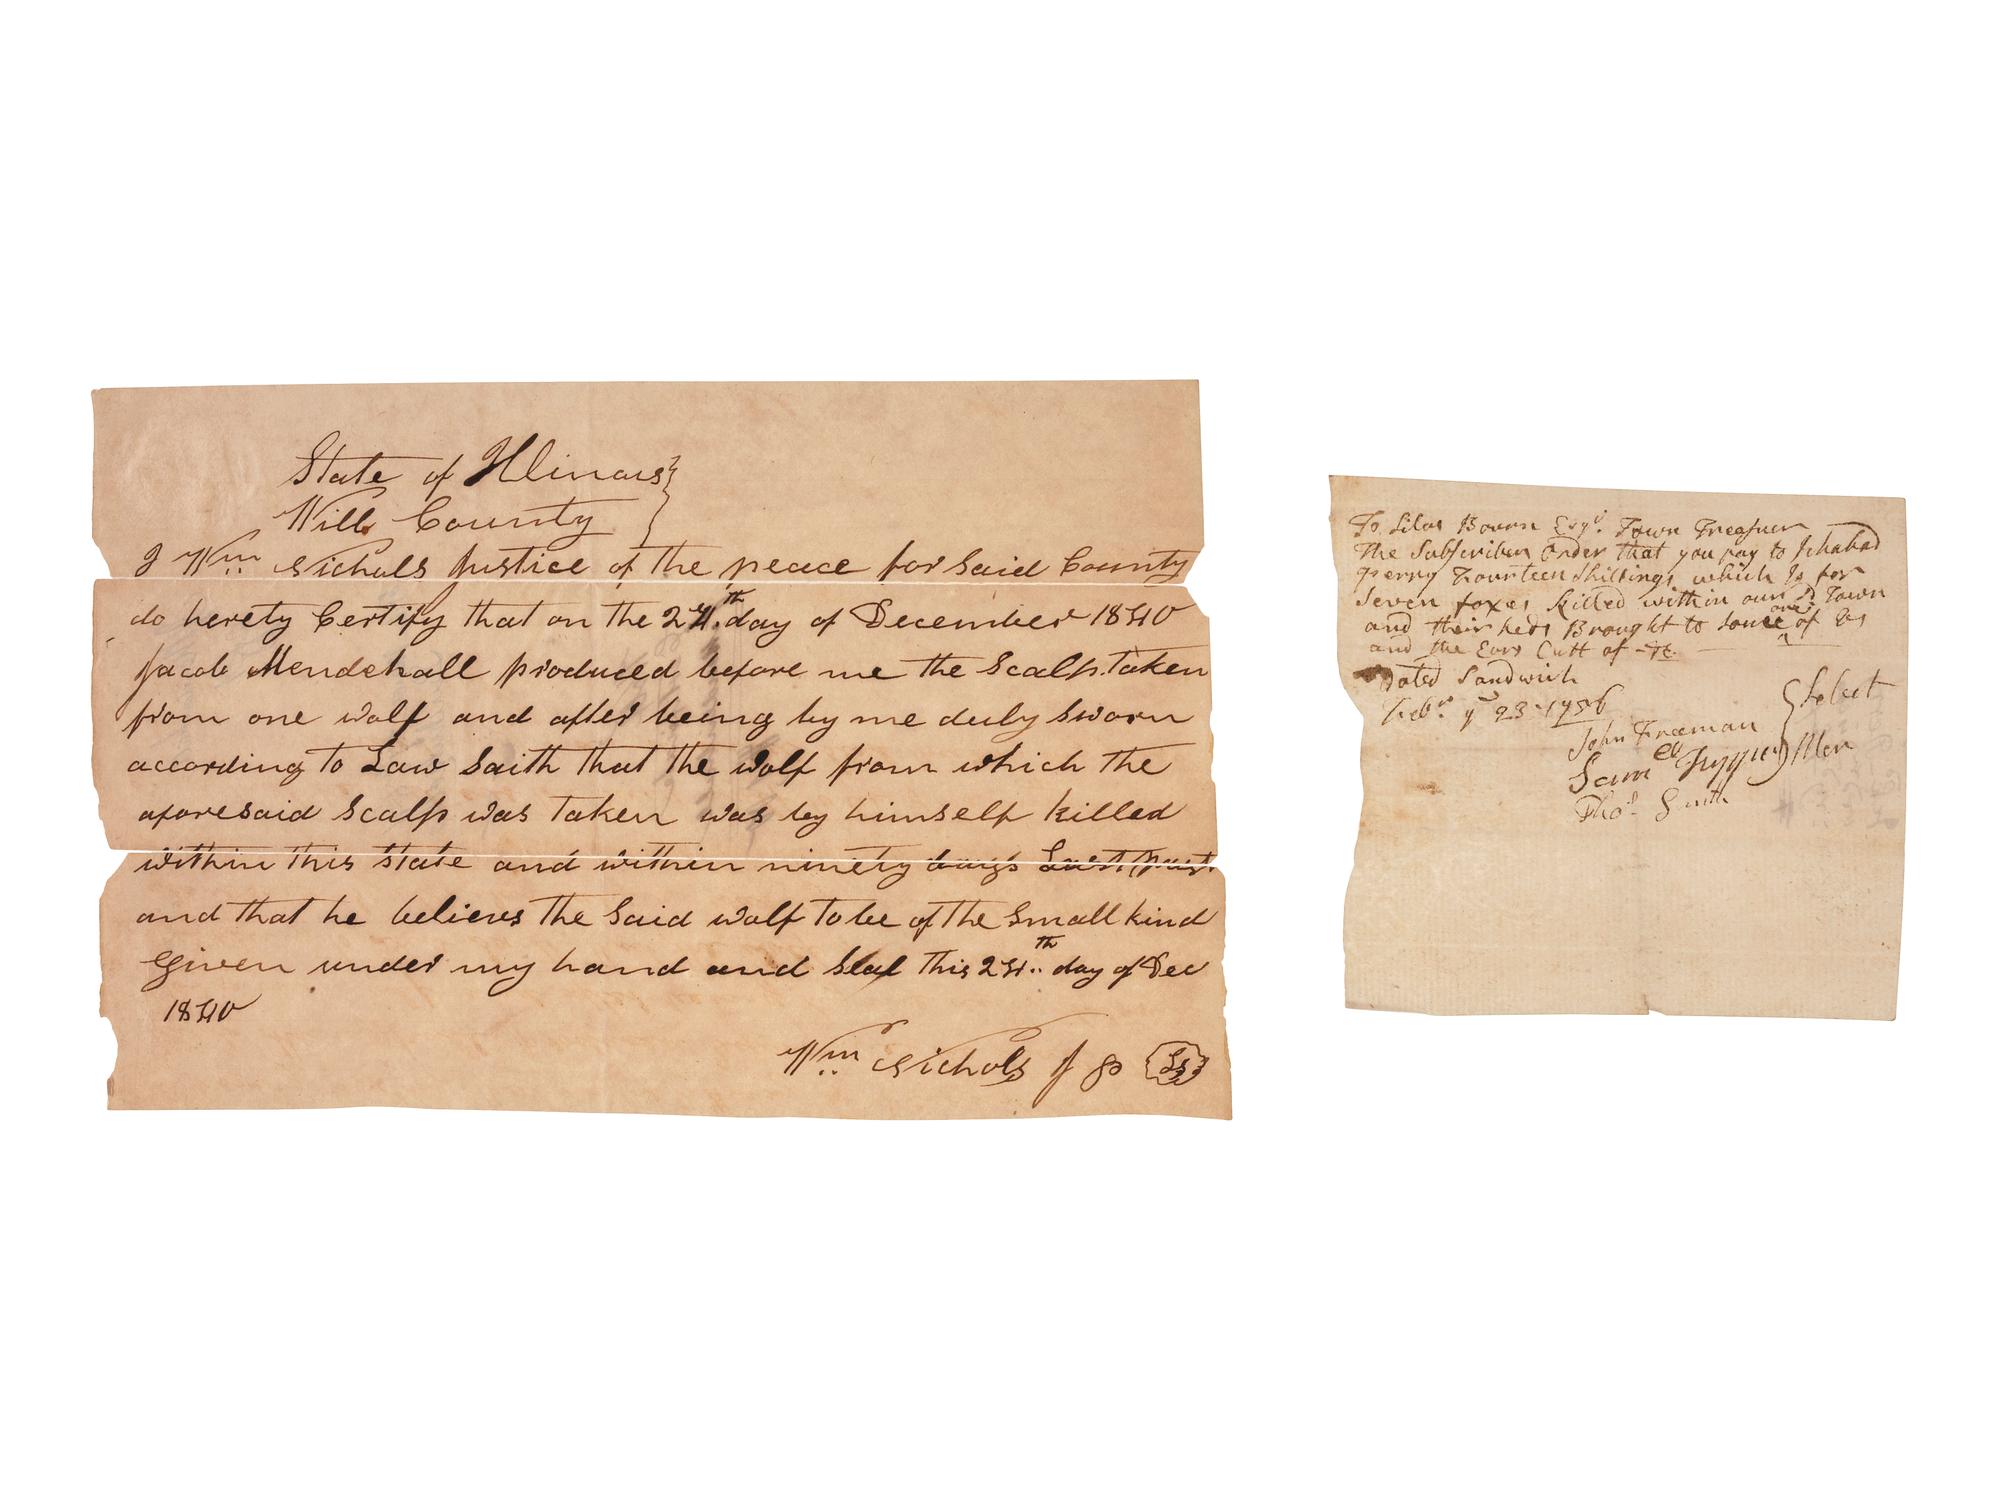 State of Illinois }
Will County }
I Wm Nichols Justice of the peace for Said County
do herety Certify that on the 24th day of December 1840
Jacob Mendehall produced before me the Scalp taken
from one wolf and after being by me duly Sworn
according to Law Saith that the wolf from which the
aforesaid Scalp was taken was by himself killed
within this State and within ninety days Last past
and that he believes the Said wolf to be of the Small kind
Given under my hand and Seal this 24th day of Dec
1840
Wm Nichols J P LS
To Silas Bourn Esqr. Town Treasuer
The Subscriber Order that you pay to Ichabad
Perry Fourteen Shillings which Is for
Seven foxes killed within our sd Town
and their heds Brought to one of Us
and the Ears Cutt of
Dated Sandwich
Febr. ye 23 1756
John Freeman } Select
Saml } Men
Thos. Smith